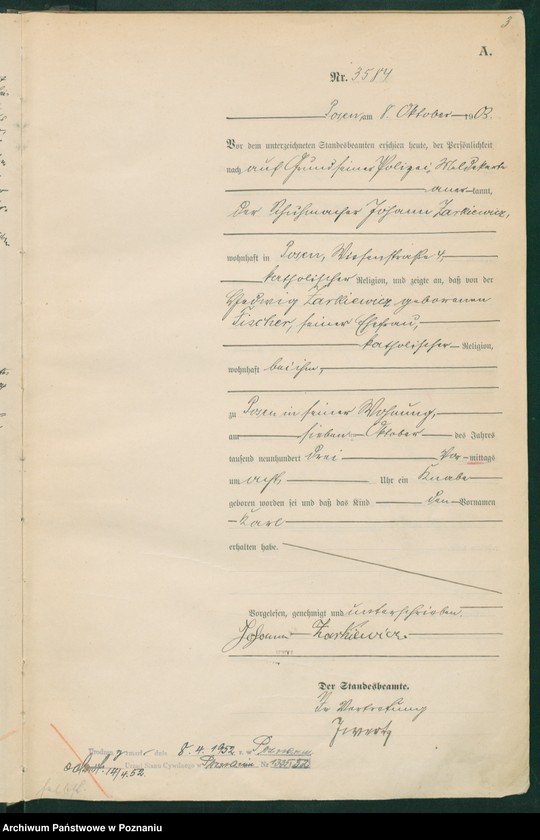 3
A.
Nr. 3584
Posen, am 8. Oktober 1903.
Vor dem unterzeichneten Standesbeamten erschien heute, der Persönlichkeit
nach auf Grund seiner Polizei-Meldekarte
anerkannt,
der Schuhmacher Johann Zarkiewicz,
wohnhaft in Posen, Wiesenstraße 4,
katholischer Religion, und zeigte an, daß von der
Hedwig Zarkiewicz geborenen
Fischer, seiner Ehefrau,
katholischer Religion,
wohnhaft bei ihm,
zu Posen in seiner Wohnung,
am sieben Oktober des Jahres
tausend neunhundert drei Vor-mittags
um acht Uhr ein Knabe
geboren worden sei und daß das Kind den Vornamen
Karl
erhalten habe.
Vorgelesen, genehmigt und unterschrieben
Johann Zarkiewicz.
Der Standesbeamte.
In Vertretung
dnia 8.4.1952 r. w
Urząd Stanu Cywilnego w Nr
14/4.52
Archiwum Państwowe w Poznaniu